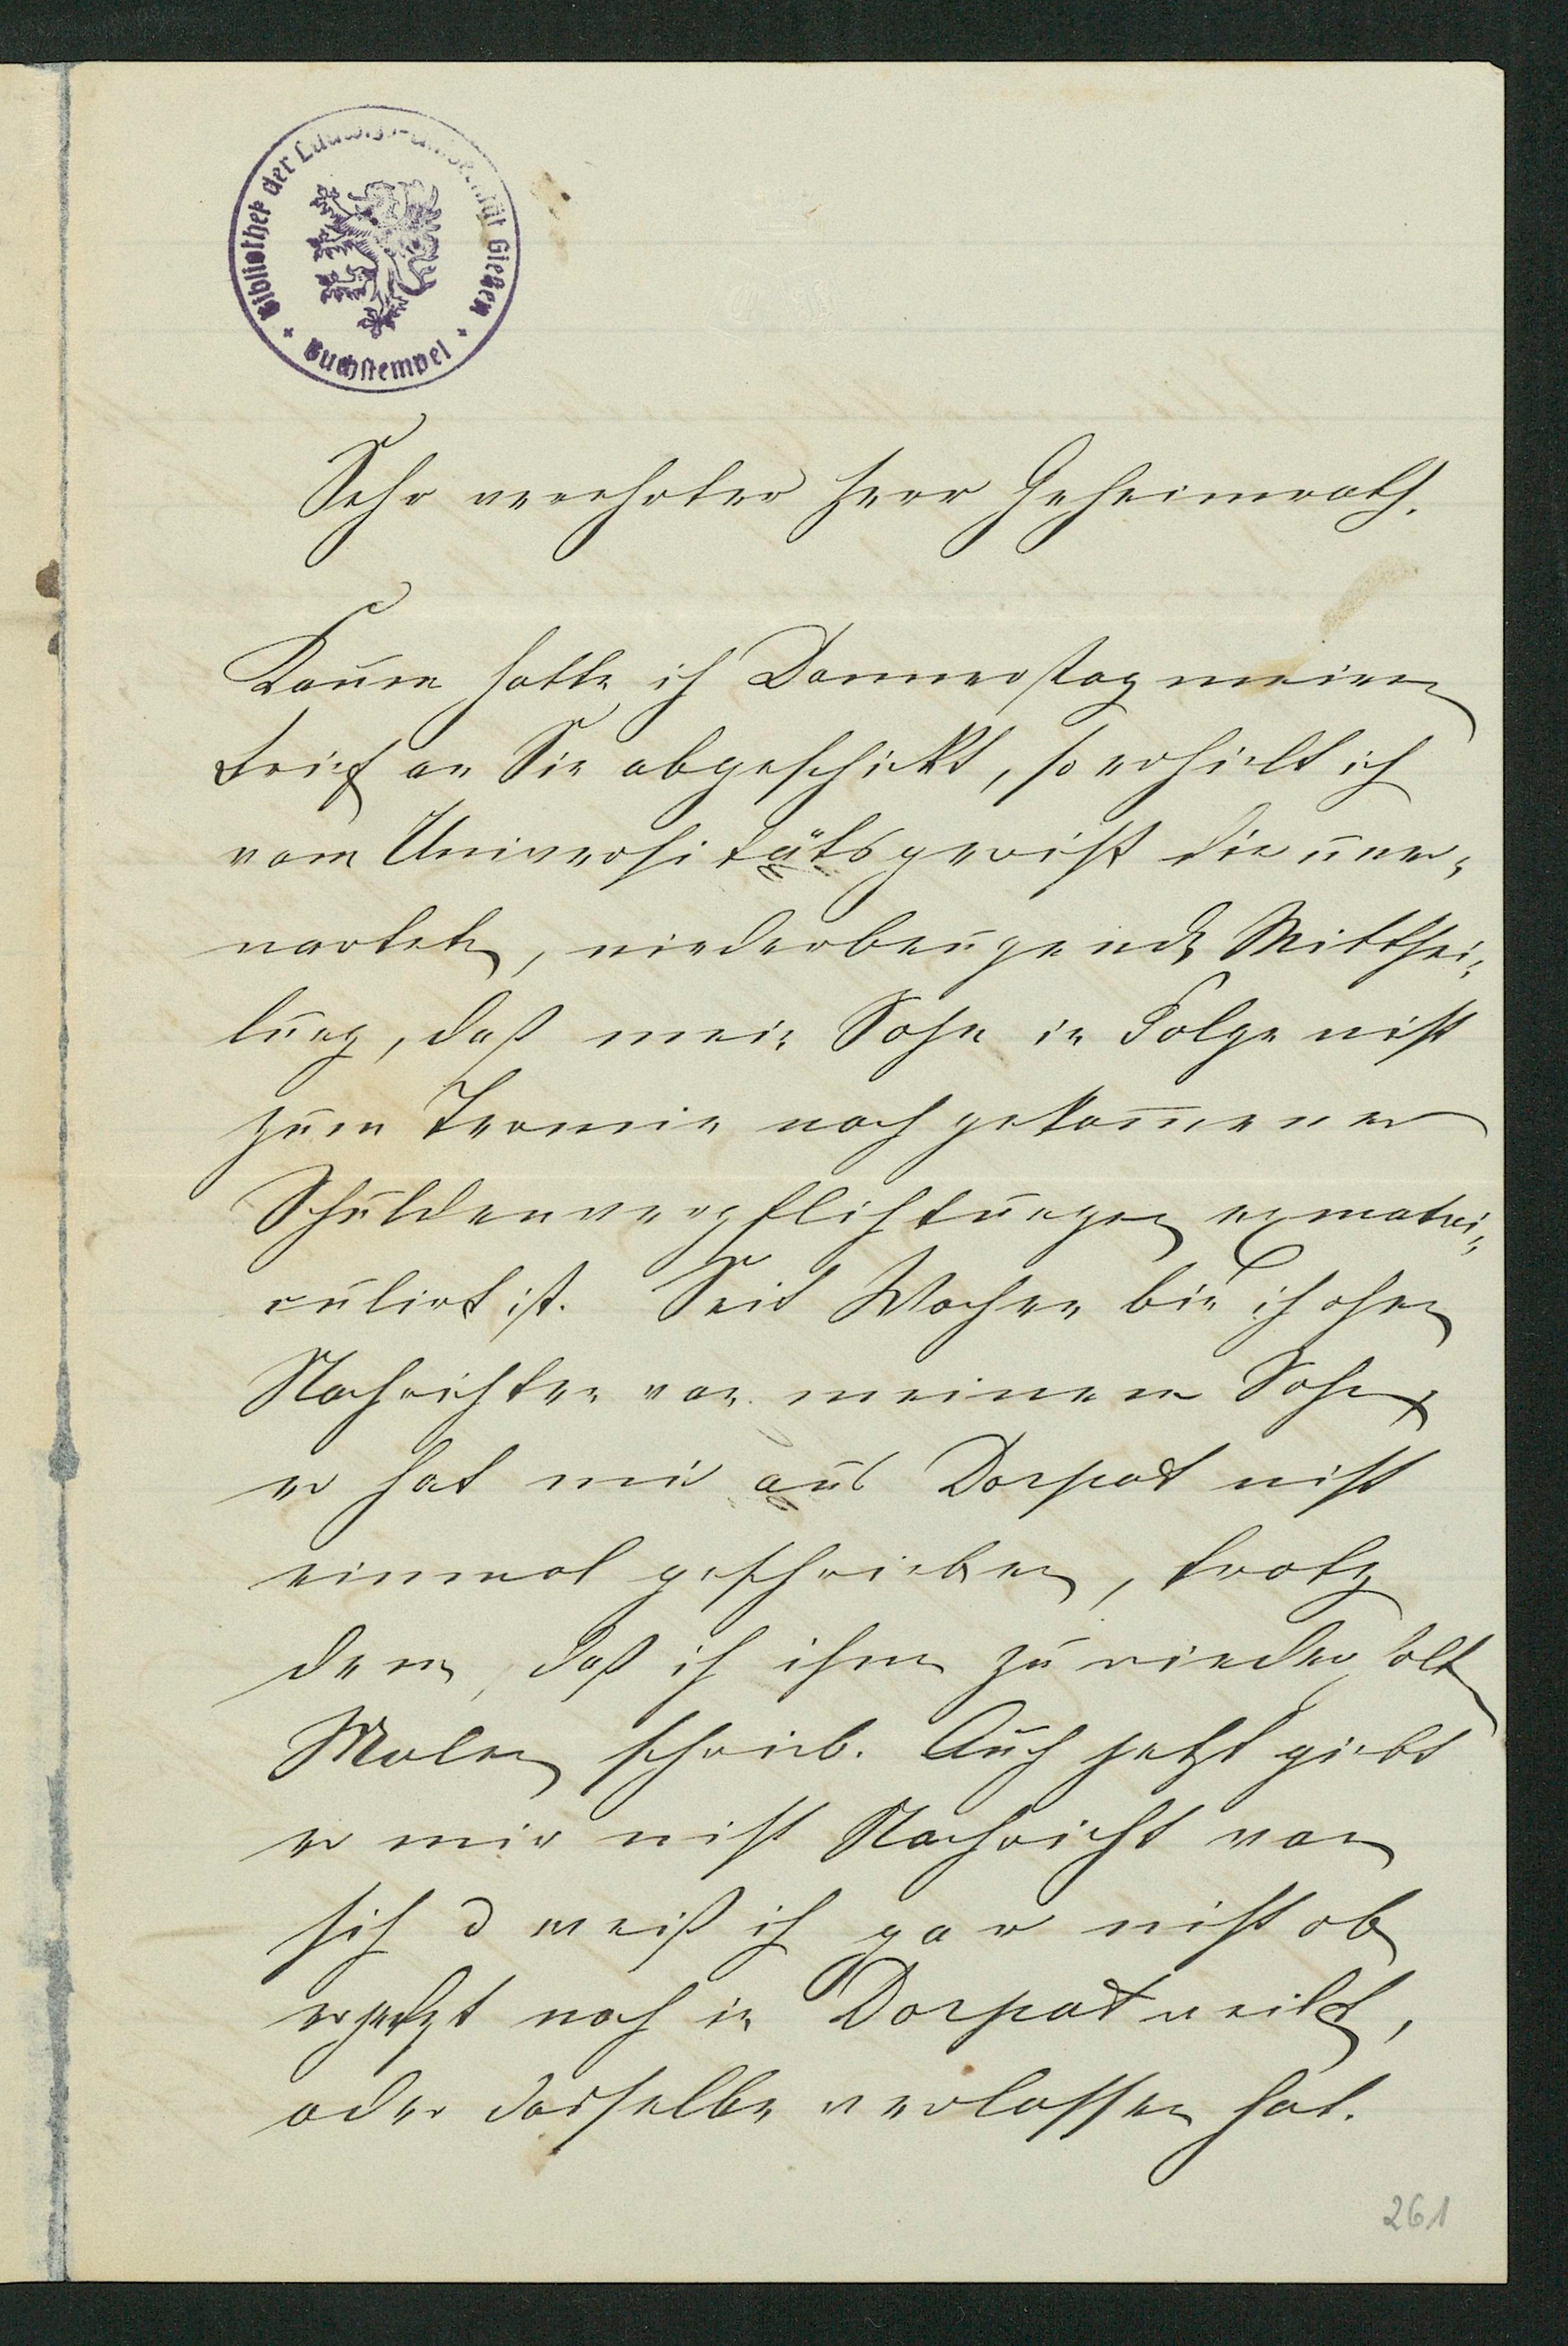 Bibliothek der Ludwigs-Universität Gießen
Buchstempel
Sehr verehrter Herr Geheimrath.
Kaum hatte ich Donnerstag meinen
Brief an Sie abgeschickt, so erhielt ich
vom Universitätsgericht die uner-
wartete, niederbeugende Mitthei-
lung, daß mein Sohn in Folge nicht
zum Termin nachgekommener
Schuldenverpflichtungen exmatri-
culirt ist. Seit Wochen bin ich ohne
Nachrichten von meinem Sohn,
er hat mir aus Dorpat nicht
einmal geschrieben, trotz
dem, daß ich ihm zu wiederholte
Malen schrieb. Auch jetzt giebt
er mir nicht Nachricht von
sich u weiß ich gar nicht ob
er jetzt noch in Dorpat weilt,
oder dasselbe verlassen hat.
261